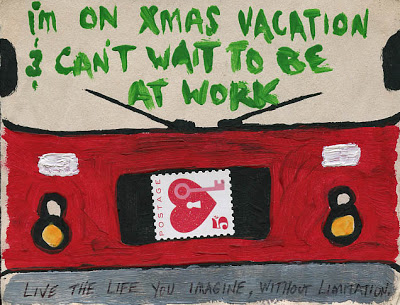 im ON XMAS VACATION
& CAN'T WAIT TO BE
AT WORK
POSTAGE
5¢
LIVE THE LIFE YOU IMAGINE, WITHOUT LIMITATION.